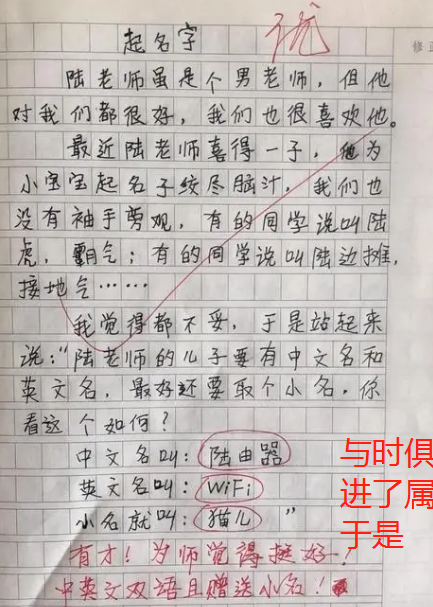 起名字
优
修正
陆老师虽是个男老师，但他
对我们都很好，我们也很喜欢他。
最近陆老师喜得一子，他为
小宝宝起名子绞尽脑汁，我们也
没有袖手剪观，有的同学说叫陆
虎，霸气；有的同学说叫陆边摊，
接地气……
我觉得都不妥，于是站起来
说：“陆老师的儿子要有中文名和
英文名，最好还要取个小名，你
看这个如何？
中文名叫：陆由器
英文名叫：WiFi
小名就叫：猫儿”
与时俱
进了属
于是
有才！为师觉得挺好！
中英文双语且赠送小名！